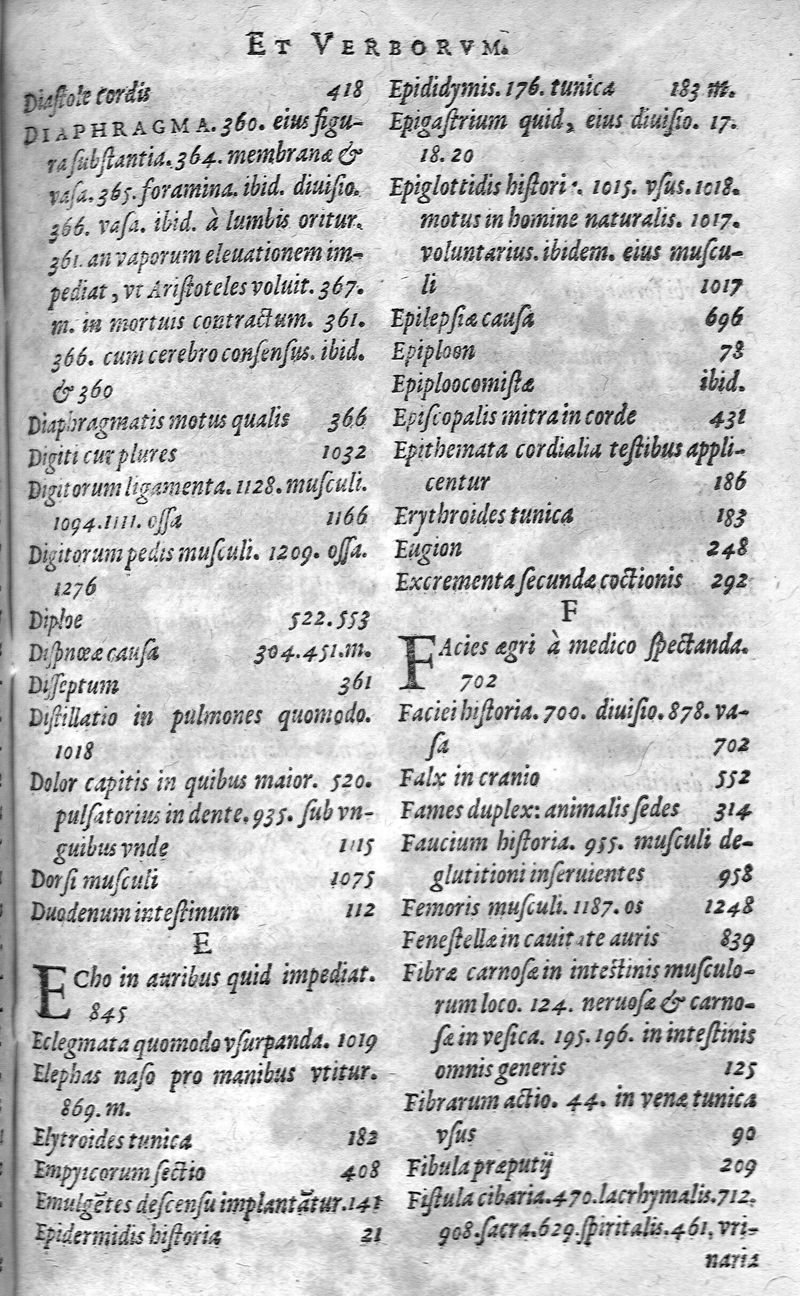 ET VERBORVM.
Diaſtole cordis 418
DIAPHRAGMA. 360. eius figu-
ra ſubſtantia. 364. membranæ &
vaſa. 365. foramina. ibid. diuiſio.
366. vaſa. ibid. à lumbis oritur.
361. an vaporum eleuationem im-
pediat, vt Ariſtoteles voluit. 367.
m. in mortuis contractum. 361.
366. cum cerebro conſenſus. ibid.
& 360
Diaphragmatis motus qualis 366
Digiti cur plures 1032
Digitorum ligamenta. 1128. muſculi.
1094. 1111. oſſa 1166
Digitorum pedis muſculi. 1209. oſſa.
1276
Diploe 522. 553
Diſpnœæ cauſa 304. 451. m.
Diſſeptum 361
Diſtillatio in pulmones quomodo.
1018
Dolor capitis in quibus maior. 520.
pulſatorius in dente. 935. ſub vn-
guibus vnde 1115
Dorſi muſculi 1075
Duodenum inteſtinum 112
E
ECho in auribus quid impediat.
845
Eclegmata quomodo vſurpanda. 1019
Elephas naſo pro manibus vtitur.
869. m.
Elytroides tunica 182
Empyicorum ſectio 408
Emulgẽtes deſcenſu implantãtur. 141
Epidermidis hiſtoria 21
Epididymis. 176. tunica 183 m.
Epigaſtrium quid, eius diuiſio. 17.
18. 20
Epiglottidis hiſtori. 1015. vſus. 1018.
motus in homine naturalis. 1017.
voluntarius. ibidem. eius muſcu-
li 1017
Epilepſiæ cauſa 696
Epiploon 78
Epiploocomiſtæ ibid.
Epiſcopalis mitra in corde 431
Epithemata cordialia teſtibus appli-
centur 186
Erythroides tunica 183
Eugion 248
Excrementa ſecundæ coctionis 292
F
FAcies ægri à medico ſpectanda.
702
Faciei hiſtoria. 700. diuiſio. 878. va-
ſa 702
Falx in cranio 552
Fames duplex: animalis ſedes 314
Faucium hiſtoria. 955. muſculi de-
glutitioni inſeruientes 958
Femoris muſculi. 1187. os 1248
Feneſtellæ in cauitate auris 839
Fibræ carnoſæ in inteſtinis muſculo-
rum loco. 124. neruoſæ & carno-
ſæ in veſica. 195. 196. in inteſtinis
omnis generis 125
Fibrarum actio. 44. in venæ tunica
vſus 90
Fibula præputij 209
Fiſtula cibaria. 470. lacrhymalis. 712.
908. ſacra. 629. ſpiritalis. 461. vri-
naria